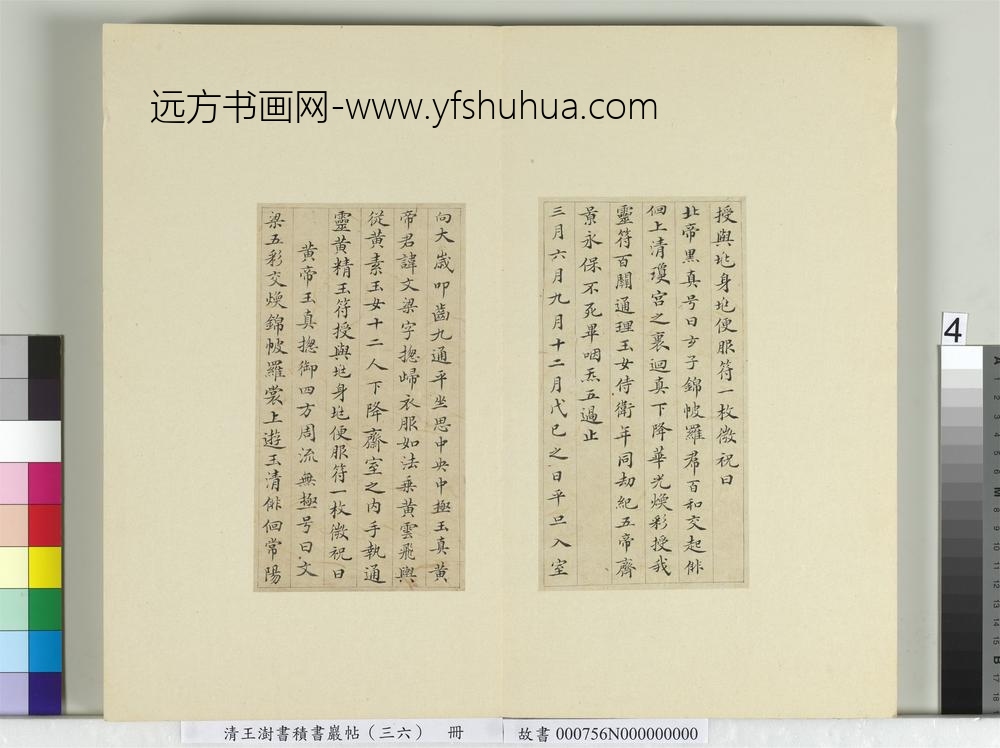 远方书画网-www.yfshuhua.com
授與兆身兆便服符一枚微祝曰
北帝黑真号曰玄子錦帔羅帬百和交起俳
佪上清瓊宮之裏迴真下降華光煥彩授我
靈符百關通理玉女侍衛年同劫紀五帝齊
景永保不死畢咽炁五過止
三月六月九月十二月戊巳之日平旦入室
向大歲叩齒九通平坐思中央中極玉真黃
帝君諱文梁字揔歸衣服如法乘黃雲飛輿
從黃素玉女十二人下降齋室之内手執通
靈黃精玉符授與兆身兆便服符一枚微祝曰
黃帝玉真揔御四方周流無極号曰文
梁五彩交煥錦帔羅裳上遊玉清俳佪常陽
4
清王澍書積書巖帖（三六） 冊
故書 000756N000000000